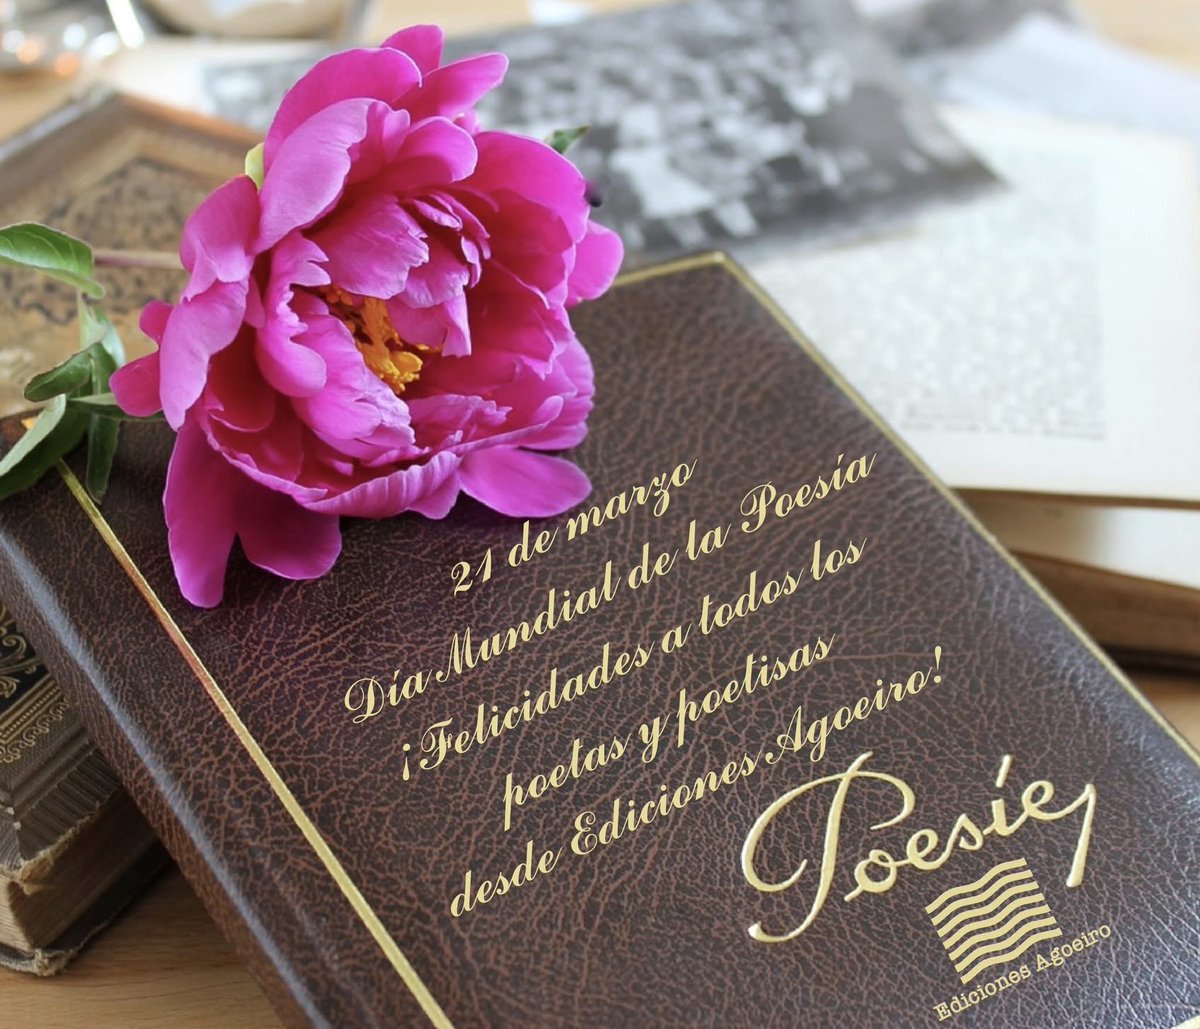 21 de marzo
Día Mundial de la Poesía
¡Felicidades a todos los
poetas y poetisas
desde Ediciones Agoeiro!
Poesie
Ediciones Agoeiro